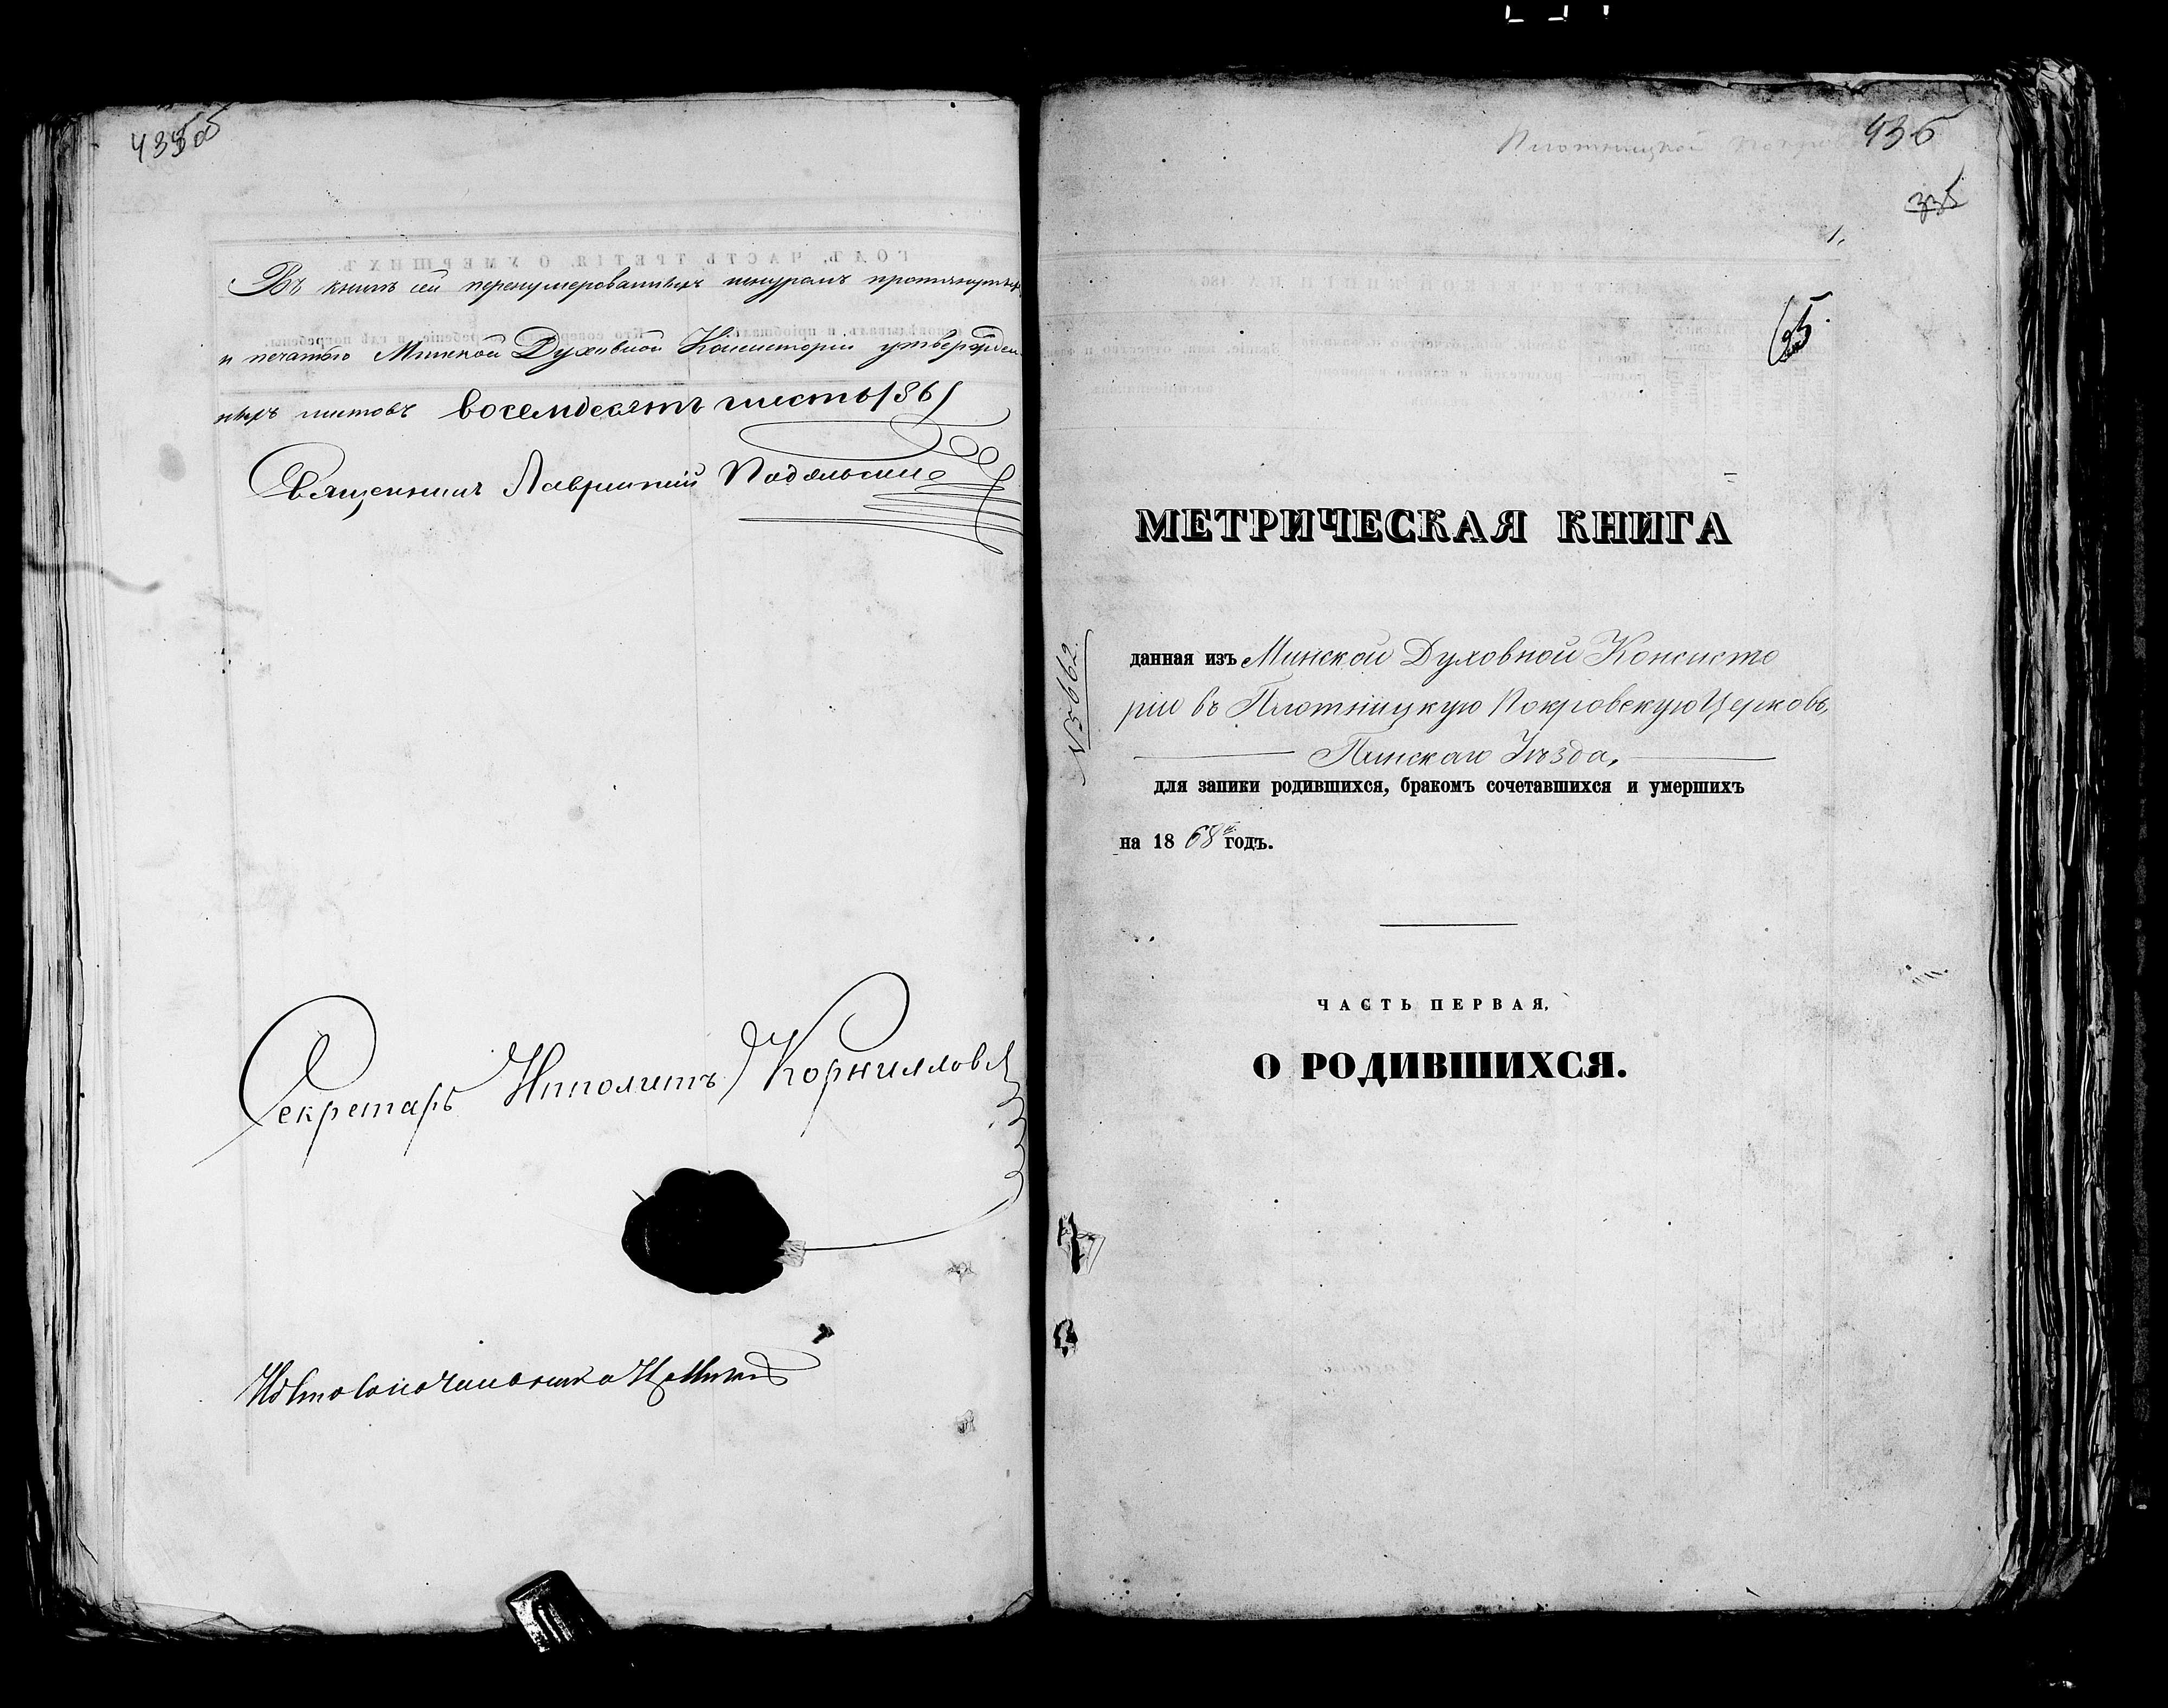 435об
Въ книгѣ сей перенумерованныхъ шнуромъ протянутыхъ
и печатью Минской Духовной Консисторіи утвержден
ныхъ листовъ восемдесятъ шесть /86/
Священникъ Лаврентій Подольскій
Секретарь Ипполитъ Корниллов
436
Плотницкой Покров
335
1.
МЕТРИЧЕСКАЯ КНИГА
№ 5662
данная изъ Минской Духовной Консисто
ріи въ Плотницкую Покровскую Церковь,
Пинскаго Уѣзда,
для записки родившихся, бракомъ сочетавшихся и умершихъ
на 1868й годъ.
ЧАСТЬ ПЕРВАЯ,
О РОДИВШИХСЯ.